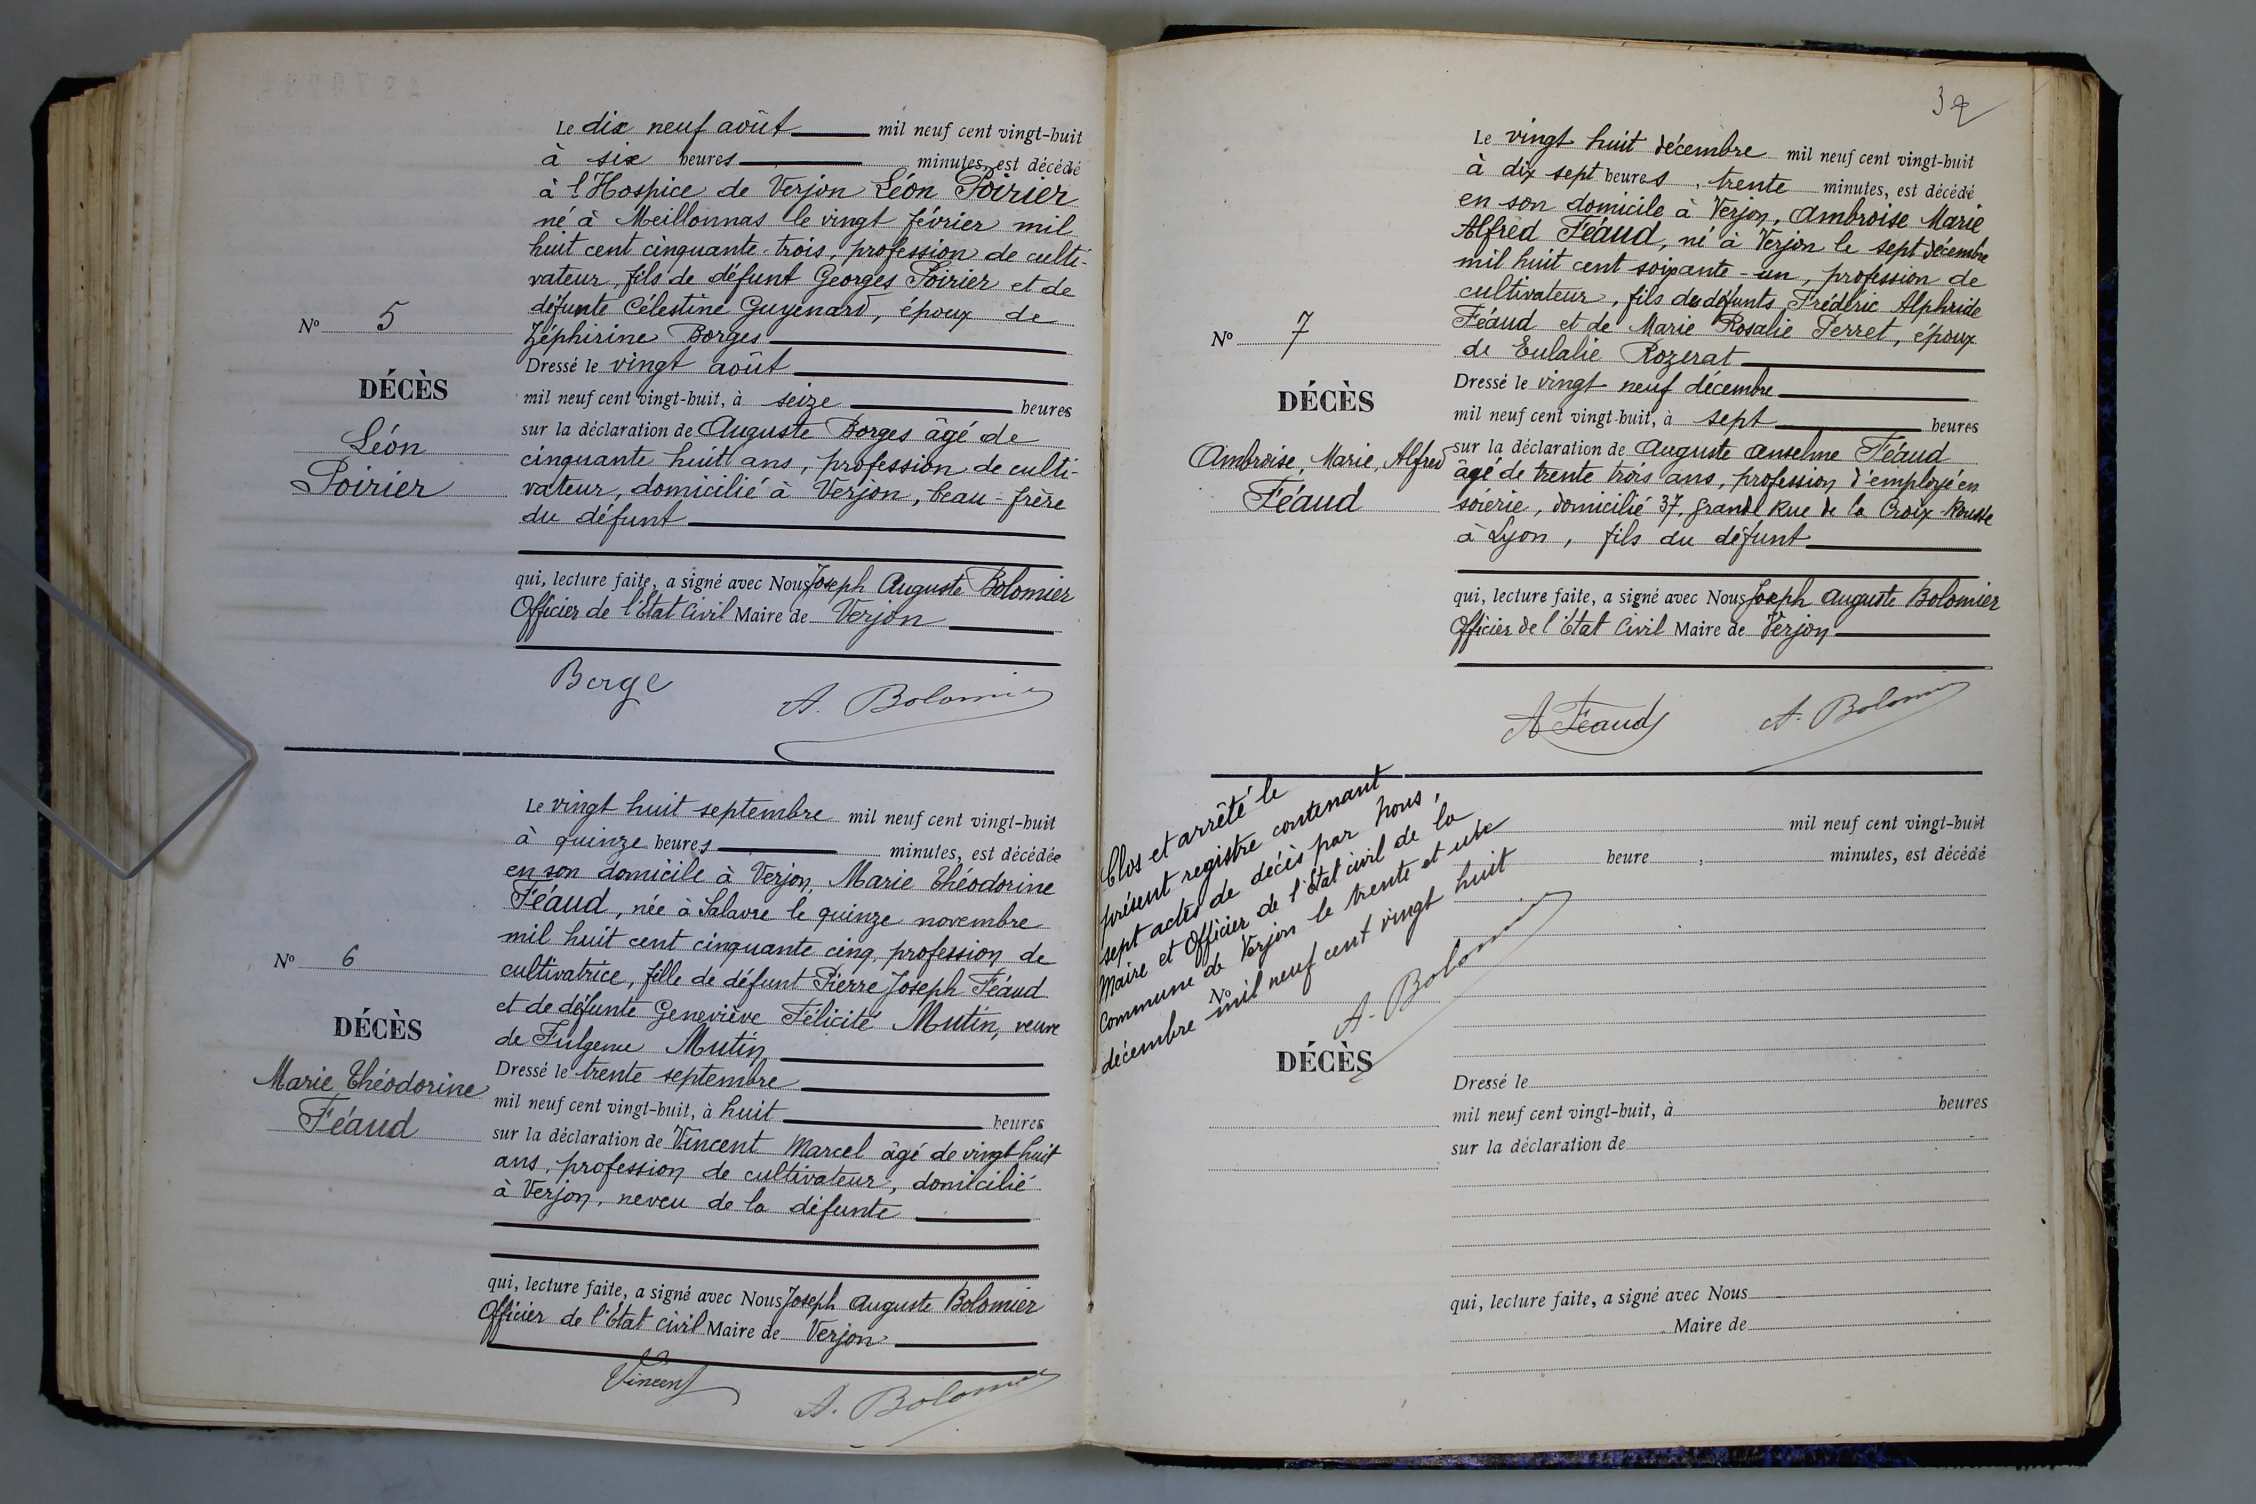 Le dix neuf août mil neuf cent vingt-huit
à six heures minutes, est décédé
à l'Hospice de Verjon Léon Poirier
né à Meillonnas le vingt février mil
huit cent cinquante-trois, profession de culti-
vateur, fils de défunt Georges Poirier et de
défunte Célestine Guyenard, époux de
Zéphirine Borges
Dressé le vingt août
mil neuf cent vingt-huit, à seize heures
sur la déclaration de Auguste Borges âgé de
cinquante huit ans, profession de culti-
vateur, domicilié à Verjon, beau-frère
du défunt
qui, lecture faite, a signé avec Nous Joseph Auguste Bolomier
Officier de l'Etat Civil Maire de Verjon
Borge
A. Bolomier
N° 5
DÉCÈS
Léon
Poirier
Le vingt huit septembre mil neuf cent vingt-huit
à quinze heures minutes, est décédée
en son domicile à Verjon, Marie Théodorine
Féaud, née à Salavre le quinze novembre
mil huit cent cinquante cinq, profession de
cultivatrice, fille de défunt Pierre Joseph Féaud
et de défunte Geneviève Félicité Mutin, veuve
de Fulgence Mutin
Dressé le trente septembre
mil neuf cent vingt-huit, à huit heures
sur la déclaration de Vincent Marcel âgé de vingt huit
ans, profession de cultivateur, domicilié
à Verjon, neveu de la défunte
qui, lecture faite, a signé avec Nous Joseph Auguste Bolomier
Officier de l'Etat Civil Maire de Verjon
Vincent
A. Bolomier
N° 6
DÉCÈS
Marie Théodorine
Féaud
32
Le vingt huit décembre mil neuf cent vingt-huit
à dix sept heures, trente minutes, est décédé
en son domicile à Verjon, Ambroise Marie
Alfred Féaud, né à Verjon le sept décembre
mil huit cent soixante-un, profession de
cultivateur, fils des défunts Frédéric Alphride
Féaud et de Marie Rosalie Perret, époux
de Eulalie Rozerat
Dressé le vingt neuf décembre
mil neuf cent vingt-huit, à sept heures
sur la déclaration de Auguste Anselme Féaud
âgé de trente trois ans, profession d'employé en
soierie, domicilié 37, Grande Rue de la Croix-Rousse
à Lyon, fils du défunt
qui, lecture faite, a signé avec Nous Joseph Auguste Bolomier
Officier de l'Etat Civil Maire de Verjon
A Féaud
A. Bolomier
N° 7
DÉCÈS
Ambroise, Marie, Alfred
Féaud
Clos et arrêté le
présent registre contenant
sept actes de décès par nous,
Maire et Officier de l'Etat civil de la
Commune de Verjon le trente et un
décembre mil neuf cent vingt huit
A. Bolomier
N°
DÉCÈS
mil neuf cent vingt-huit
heure , minutes, est décédé
Dressé le
mil neuf cent vingt-huit, à heures
sur la déclaration de
qui, lecture faite, a signé avec Nous
Maire de